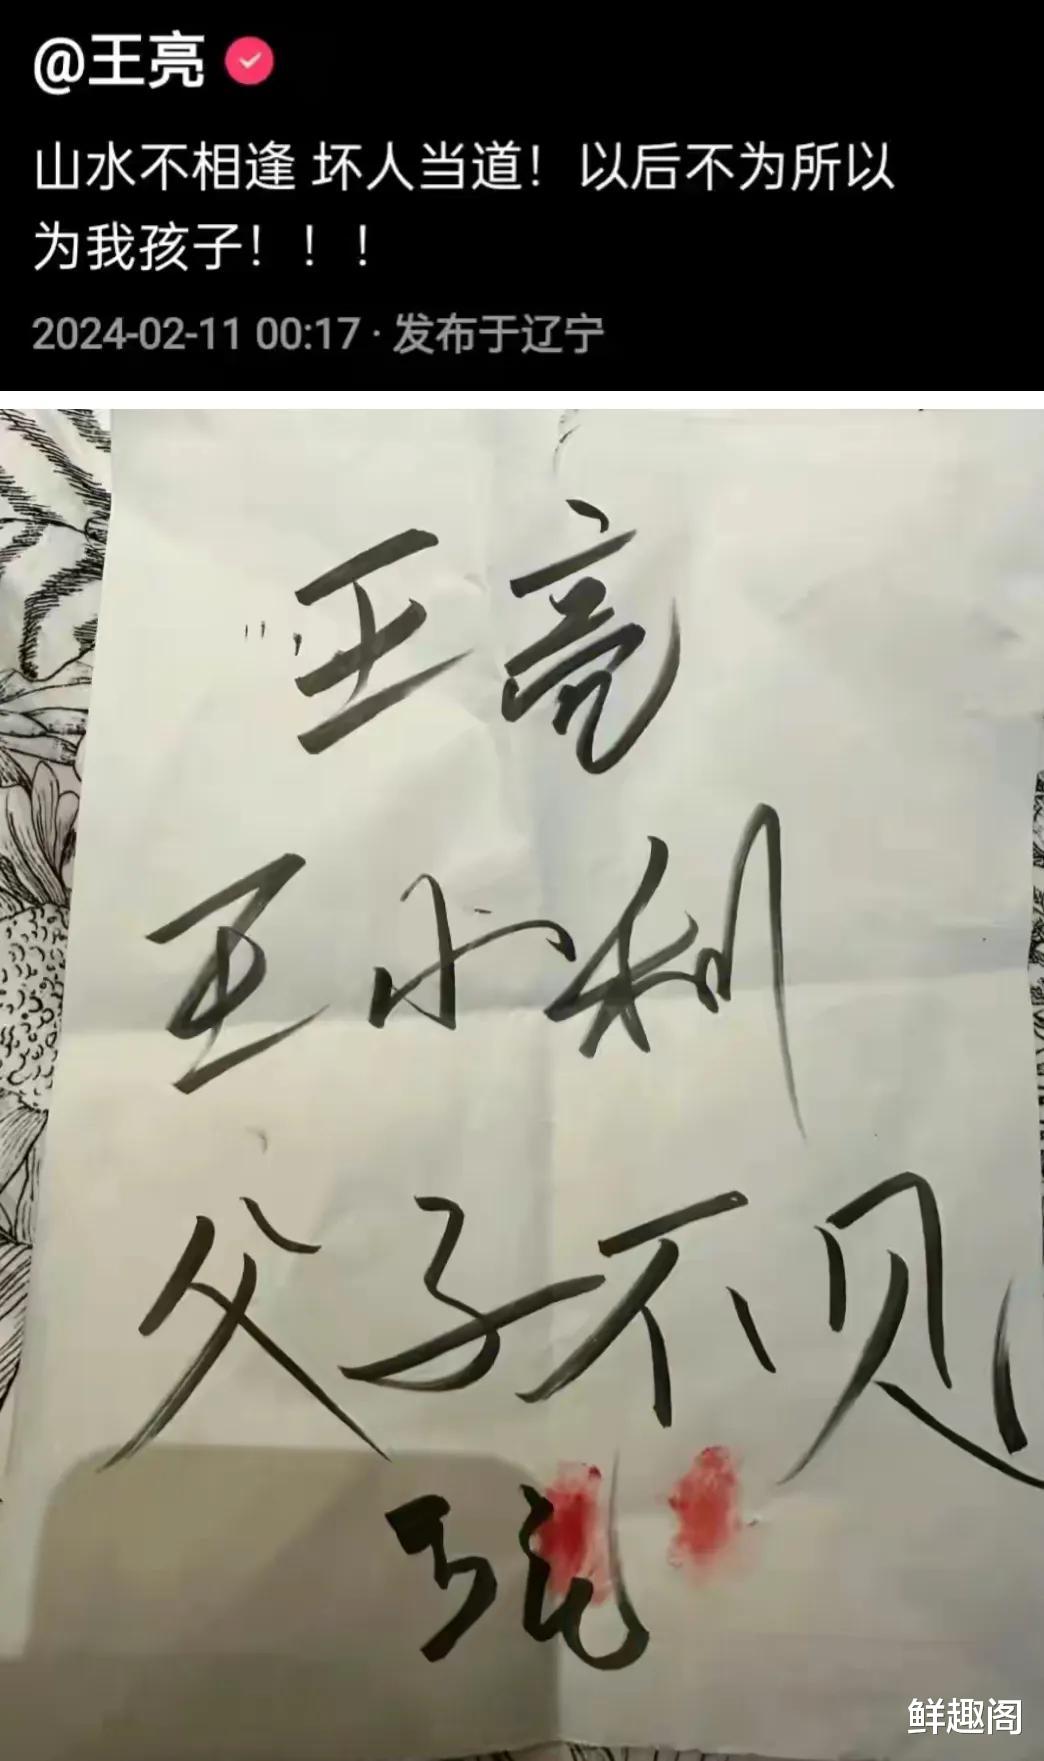 @王亮
山水不相逢 坏人当道！以后不为所以
为我孩子！！！
2024-02-11 00:17 · 发布于辽宁
王亮
王小利
父子不见
鲜趣阁